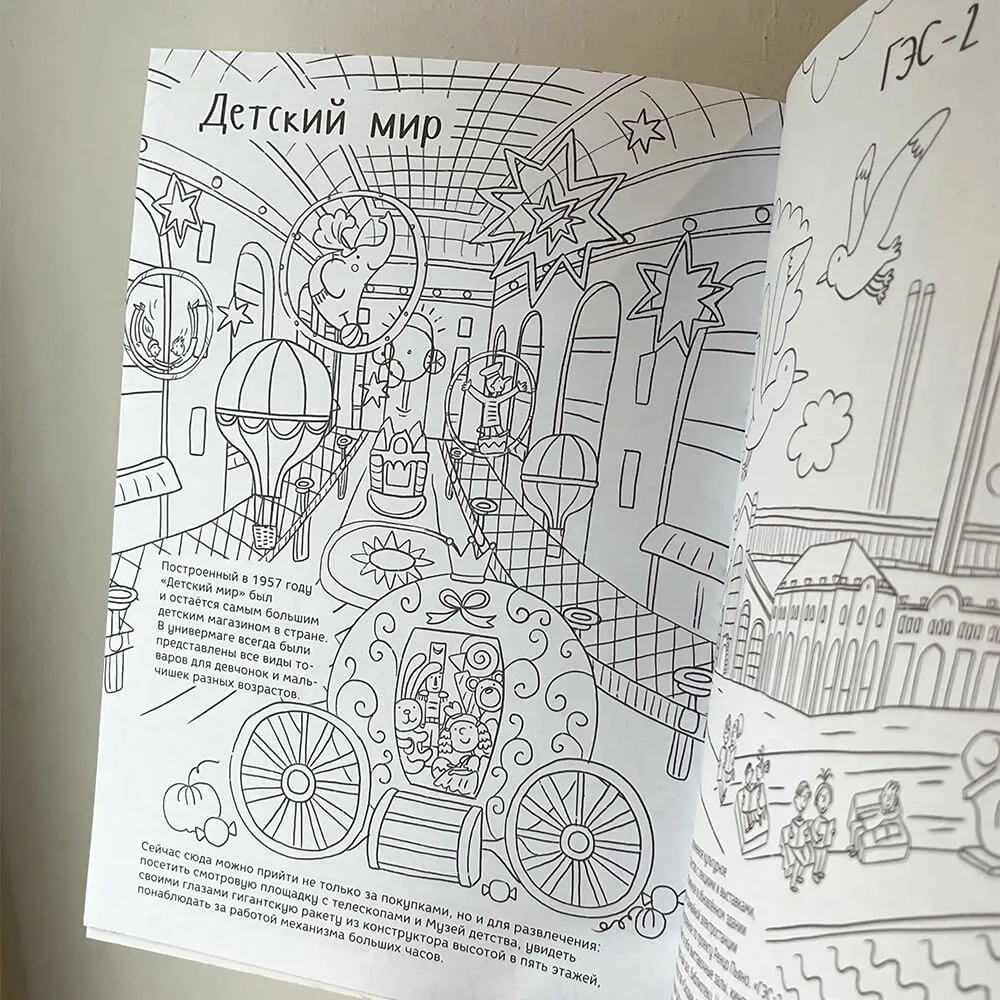 Детский мир
Построенный в 1957 году
«Детский мир» был
и остаётся самым большим
детским магазином в стране.
В универмаге всегда были
представлены все виды то-
варов для девчонок и маль-
чишек разных возрастов.
Сейчас сюда можно прийти не только за покупками, но и для развлечения:
посетить смотровую площадку с телескопами и Музей детства, увидеть
своими глазами гигантскую ракету из конструктора высотой в пять этажей,
понаблюдать за работой механизма больших часов.
ГЭС-2
«ГЭС-2